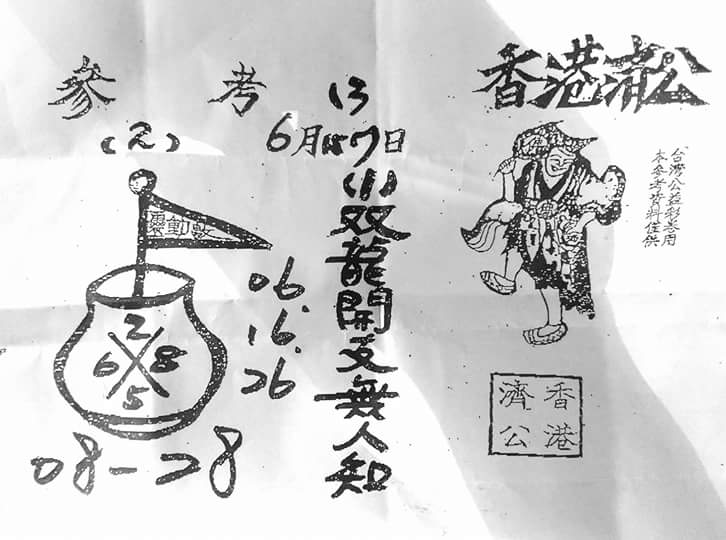 香港濟公
台灣公益彩卷用
本參考資料僅供
香港
濟公
參考
13
6月 17日
(1)
双龍開 無人知
(2)
2
6 8
5
06.
16.
26
08-28